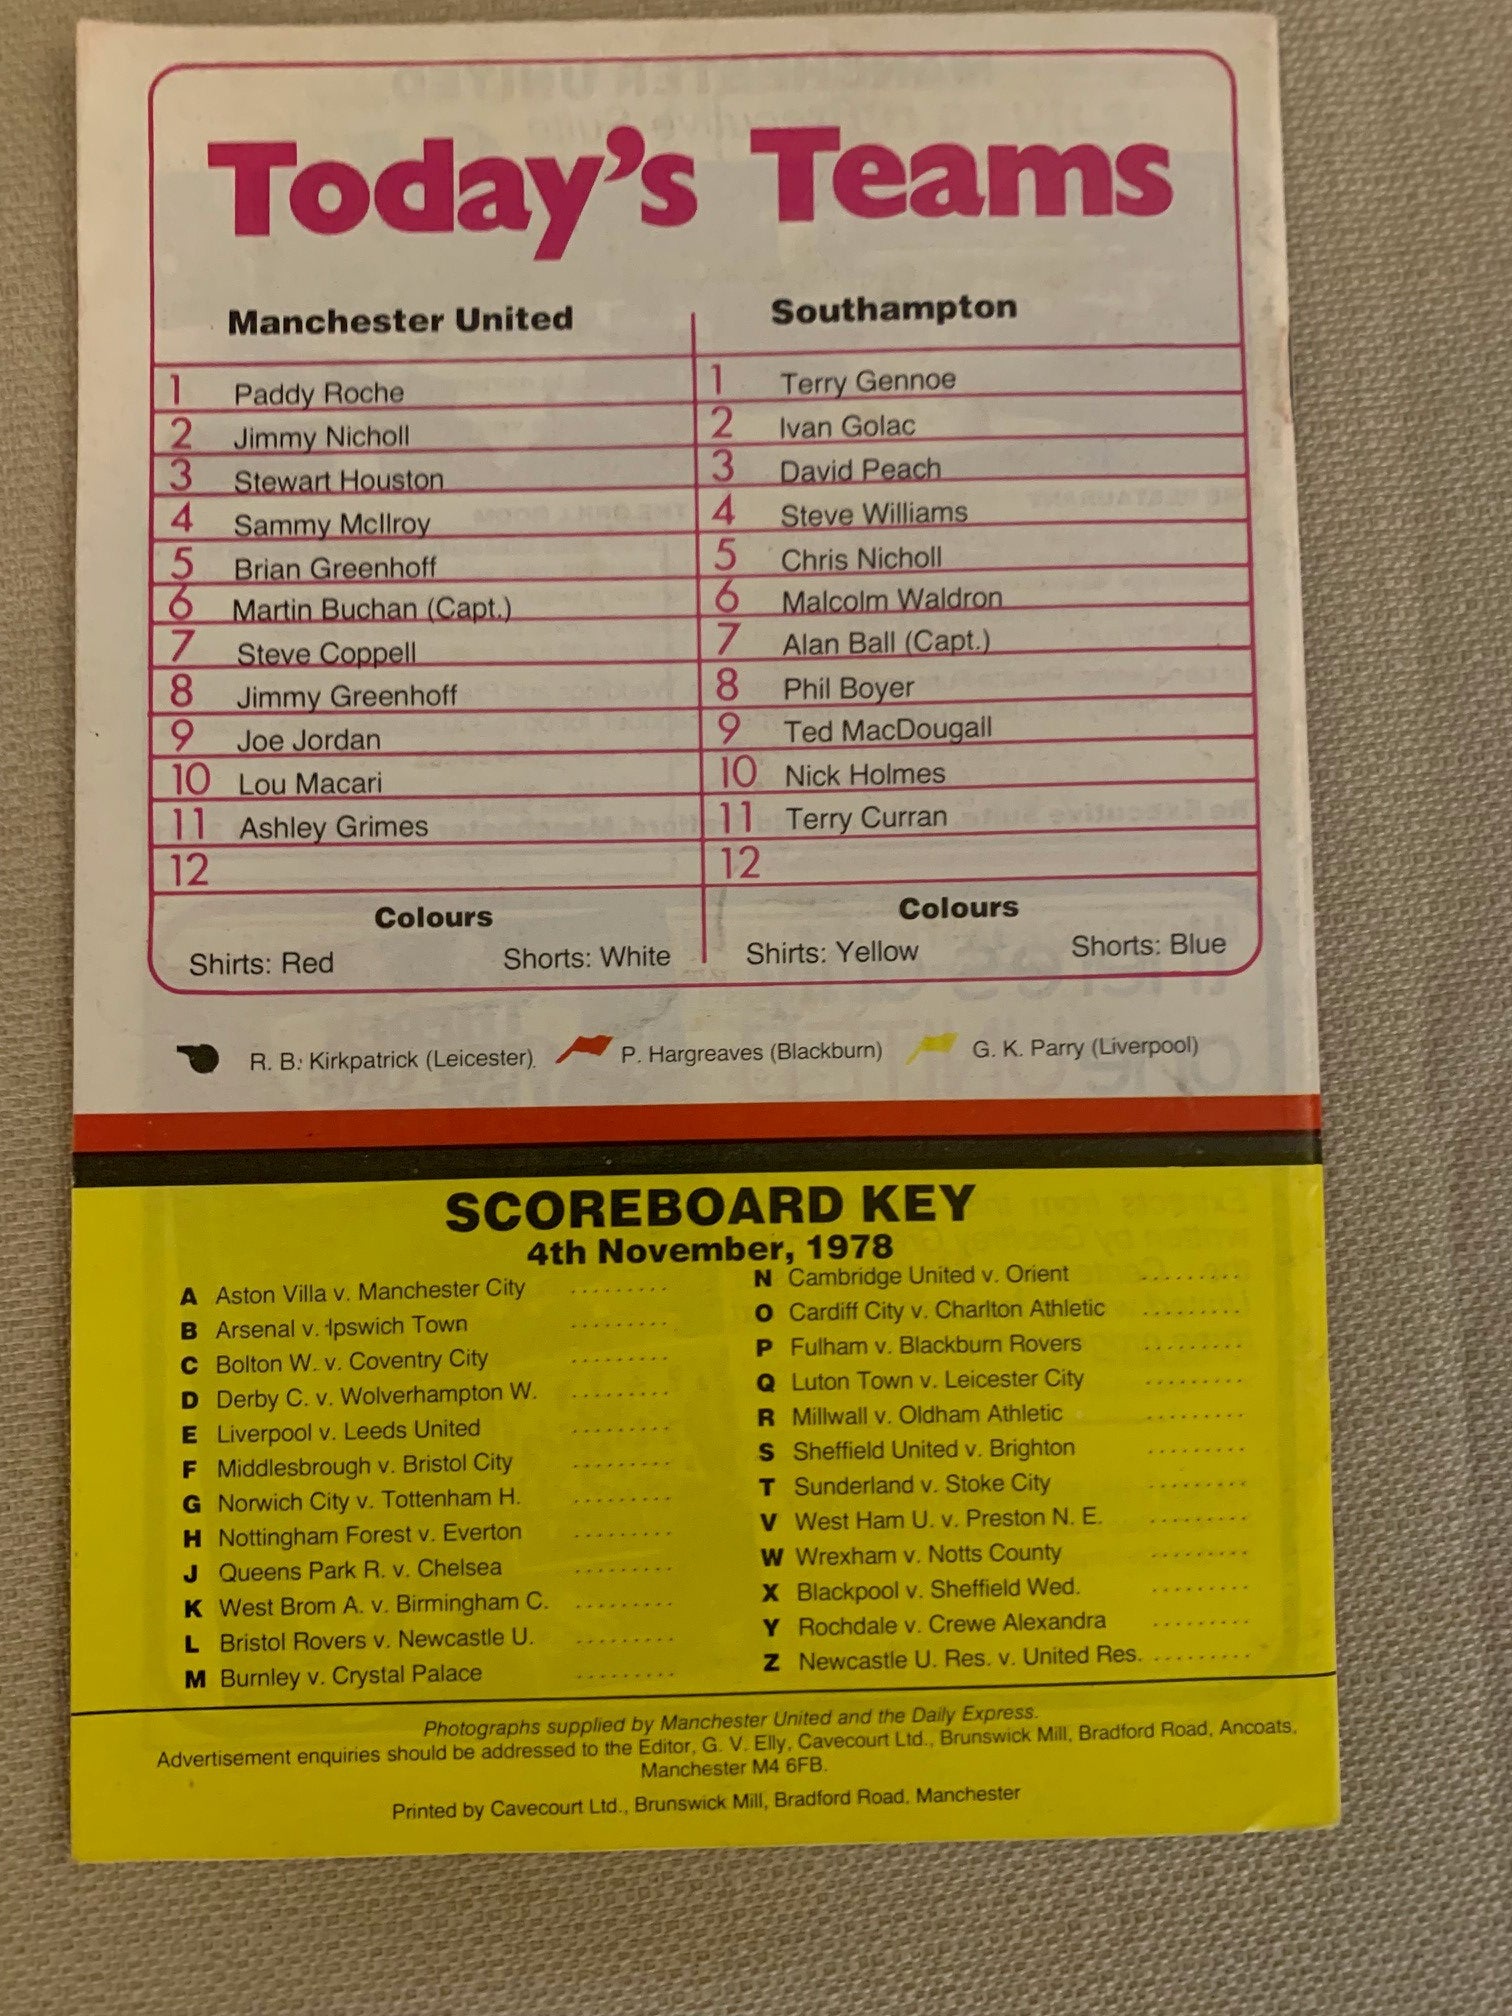 Today's Teams
Manchester United
1 Paddy Roche
2 Jimmy Nicholl
3 Stewart Houston
4 Sammy McIlroy
5 Brian Greenhoff
6 Martin Buchan (Capt.)
7 Steve Coppell
8 Jimmy Greenhoff
9 Joe Jordan
10 Lou Macari
11 Ashley Grimes
12
Colours
Shirts: Red Shorts: White
Southampton
1 Terry Gennoe
2 Ivan Golac
3 David Peach
4 Steve Williams
5 Chris Nicholl
6 Malcolm Waldron
7 Alan Ball (Capt.)
8 Phil Boyer
9 Ted MacDougall
10 Nick Holmes
11 Terry Curran
12
Colours
Shirts: Yellow Shorts: Blue
R. B. Kirkpatrick (Leicester). P. Hargreaves (Blackburn) G. K. Parry (Liverpool)
SCOREBOARD KEY
4th November, 1978
A Aston Villa v. Manchester City .........
B Arsenal v. Ipswich Town .........
C Bolton W. v. Coventry City .........
D Derby C. v. Wolverhampton W. .........
E Liverpool v. Leeds United .........
F Middlesbrough v. Bristol City .........
G Norwich City v. Tottenham H. .........
H Nottingham Forest v. Everton .........
J Queens Park R. v. Chelsea .........
K West Brom A. v. Birmingham C. .........
L Bristol Rovers v. Newcastle U. .........
M Burnley v. Crystal Palace .........
N Cambridge United v. Orient .........
O Cardiff City v. Charlton Athletic .........
P Fulham v. Blackburn Rovers .........
Q Luton Town v. Leicester City .........
R Millwall v. Oldham Athletic .........
S Sheffield United v. Brighton .........
T Sunderland v. Stoke City .........
V West Ham U. v. Preston N. E. .........
W Wrexham v. Notts County .........
X Blackpool v. Sheffield Wed. .........
Y Rochdale v. Crewe Alexandra .........
Z Newcastle U. Res. v. United Res. .........
Photographs supplied by Manchester United and the Daily Express.
Advertisement enquiries should be addressed to the Editor, G. V. Elly, Cavecourt Ltd., Brunswick Mill, Bradford Road, Ancoats,
Manchester M4 6FB.
Printed by Cavecourt Ltd., Brunswick Mill, Bradford Road, Manchester